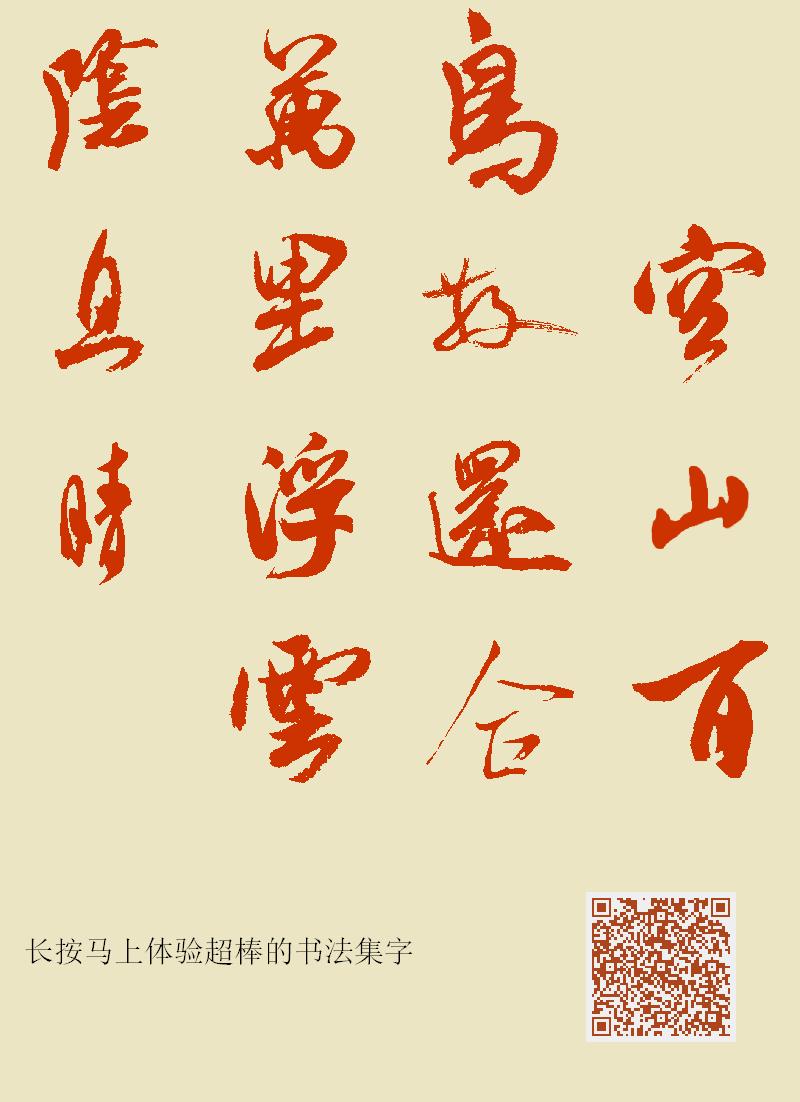 空山百
鳥散還合
萬里浮雲
陰且晴
长按马上体验超棒的书法集字